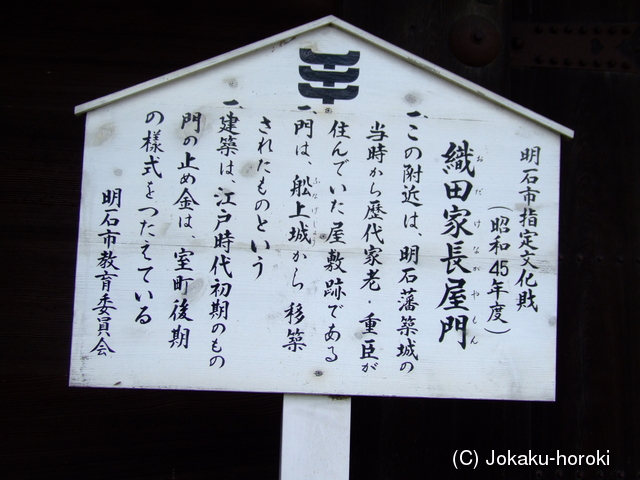 明石市指定文化財
(昭和45年度)
織田家長屋門
おだけながやもん
一、この附近は、明石藩築城の
当時から歴代家老・重臣が
住んでいた屋敷跡である
一、門は、舩上城から移築
ふなげじょう
されたものという
一、建築は、江戸時代初期のもの
門の止め金は、室町後期
の様式をつたえている
明石市教育委員会
(C) Jokaku-horoki